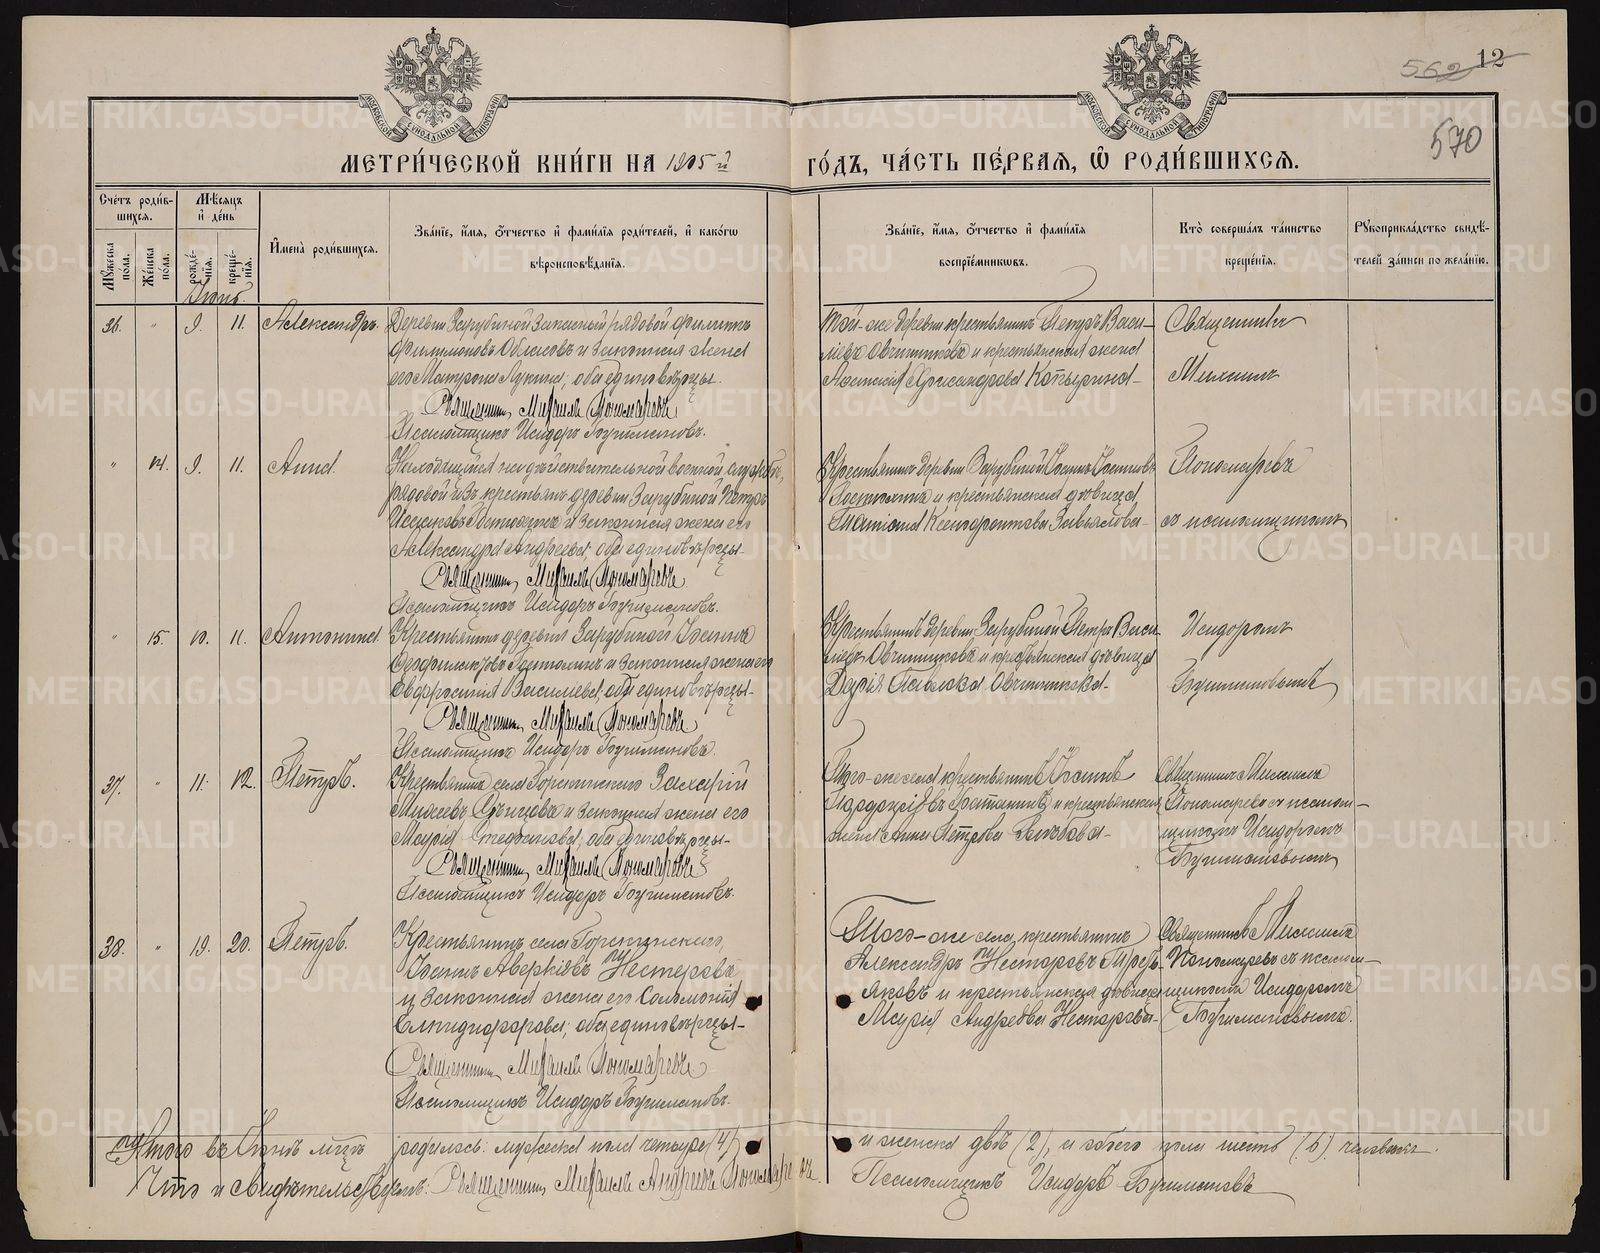 562 12
570
МОСКОВСКОЙ СѴНОДАЛЬНОЙ ТИПОГРАФІИ
МОСКОВСКОЙ СѴНОДАЛЬНОЙ ТИПОГРАФІИ
МЕТРИ́ЧЕСКОЙ КНИ́ГИ НА 1905 й
ГО́ДЪ, ЧА́СТЬ ПЕ́РВАѦ, Ѽ РОДИ́ВШИХСѦ.
Сче́тъ роди́в-
шихсѧ.
Мѣ́сѧцъ
и҆ де́нь
Мꙋ́жеска
пола.
Же́нска
пола.
рожде́-
нїѧ.
креще́-
нїѧ.
И҆мена̀ роди́вшихсѧ.
Зва́нїе, и҆́мѧ, ѻ҆́тчество и҆ фами́лїѧ роди́телей, и҆ како́гѡ
вѣроисповѣ́данїѧ.
Зва́нїе, и҆́мѧ, ѻ҆́тчество и҆ фами́лїѧ
воспрїе́мникѡвъ.
Кто̀ соверша́лъ та́инство
креще́нїѧ.
Рꙋкоприкла́дство свидѣ́-
телей за́писи по жела́нїю.
Іюнь.
36. " 9. 11. Александръ.
Деревни Зарубиной Запасный рядовой Филиппъ
Филимоновъ и законная жена
его Матрона Лукина; оба единовѣрцы.
Священникъ Михаилъ Пономаревъ
Псаломщикъ Исидоръ Бушмановъ.
Той-же деревни крестьянинъ Петръ Васи-
льевъ Овчинниковъ и крестьянская жена
Александрова Копырина-
Священникъ
Михаилъ
" 14. 9. 11. Анна.
Находящійся на дѣйствительной военной службѣ,
рядовой изъ крестьянъ деревни Зарубиной Петръ
и законная жена его
Александра Андреева, оба единовѣрцы.-
Священникъ Михаилъ Пономаревъ
Псаломщикъ Исидоръ Бушмановъ.
Крестьянинъ деревни Зарубиной
и крестьянская дѣвица
Завьялова-
Пономаревъ
съ псаломщикомъ
" 15. 10. 11. Антонина.
Крестьянинъ деревни Зарубиной Іоаннъ
и законная жена его
Евфросинія Васильева, оба единовѣрцы.-
Священникъ Михаилъ Пономаревъ
Псаломщикъ Исидоръ Бушмановъ.
Крестьянинъ деревни Зарубиной Петръ Васи-
льевъ Овчинниковъ и крестьянская дѣвица
Дарія Павлова Овчинникова-
Исидоромъ
Бушмановымъ
37. " 11. 12. Петръ.
Крестьянинъ села Захарій
и законная жена его
Марія оба единовѣрцы.-
Священникъ Михаилъ Пономаревъ
Псаломщикъ Исидоръ Бушмановъ.
Того-же села крестьянинъ Іоаннъ
и крестьянская
жена Анна Петрова
Священникъ Михаилъ
Пономаревъ съ псалом-
щикомъ Исидоромъ
Бушмановымъ
38. " 19. 20. Петръ.
Крестьянинъ села
Іоаннъ Аверкіевъ Нестеровъ
и законная жена его Соломонія
Елпидифорова; оба единовѣрцы-
Священникъ Михаилъ Пономаревъ
Псаломщикъ Исидоръ Бушмановъ.
Того-же села крестьянинъ
Александръ Несторовъ Треть-
яковъ и крестьянская дѣвица
Марія Андреева Несторова-
Священникъ Михаилъ
Пономаревъ съ псалом-
щикомъ Исидоромъ
Бушмановымъ.
Итого въ Іюнѣ мѣсяцѣ родилось: мужеска пола четыре (4) и женска двѣ (2), и обоего пола шесть (6) человѣкъ.
Что и свидѣтельствуемъ: Священникъ Михаилъ Андреевъ Пономаревъ. Псаломщикъ Исидоръ Бушмановъ
METRIKI.GASO-URAL.RU